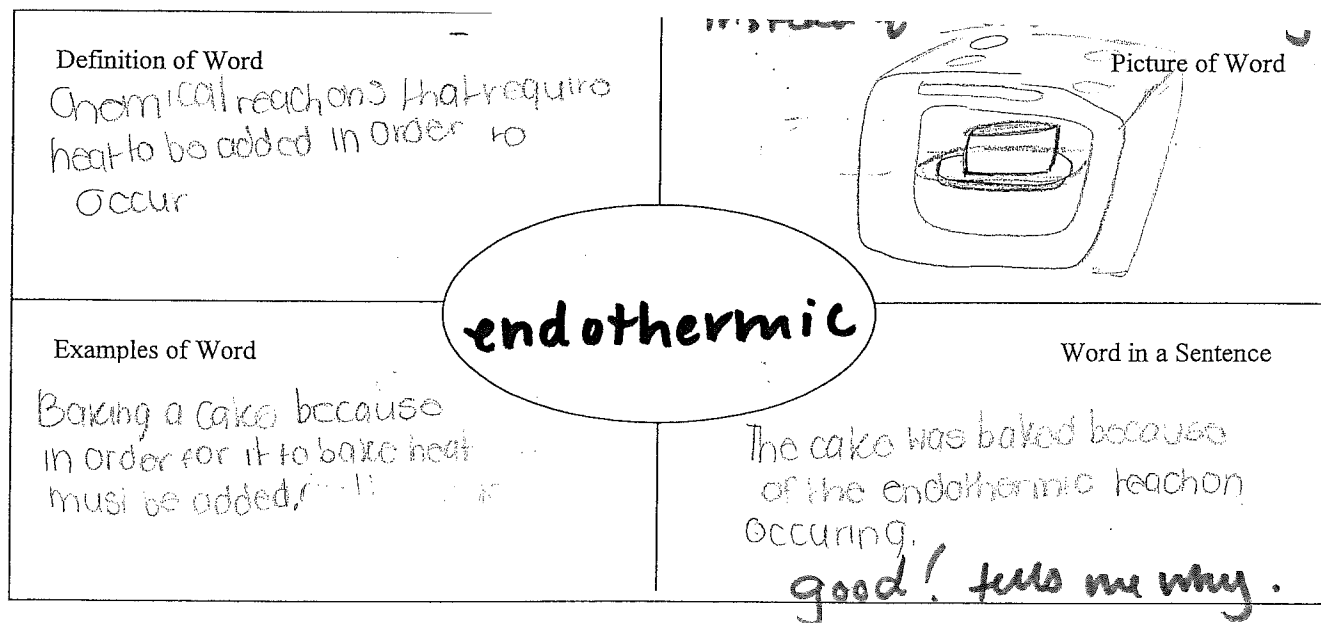 Definition of Word
Chemical reactions that require
heat to be added in order to
occur
Picture of Word
endothermic
Examples of Word
Baking a cake because
in order for it to bake heat
must be added.
Word in a Sentence
The cake was baked because
of the endothermic reaction
occuring.
good! tells me why.